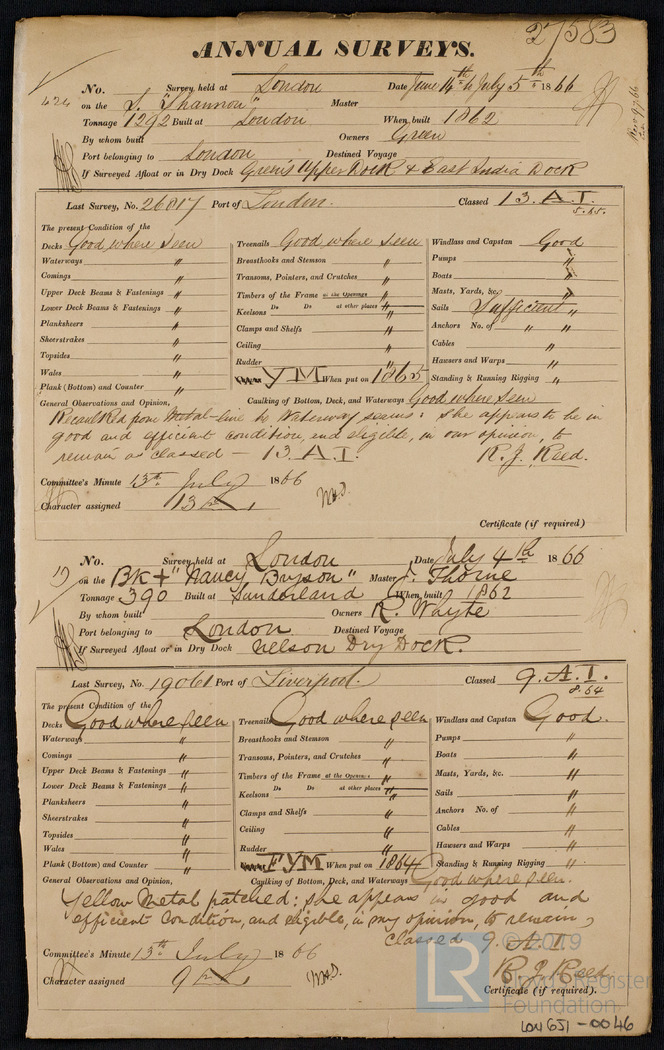 27583
ANNUAL SURVEYS.
No. Survey held at London Date June 14th to July 5th 1866
424 on the S. "Shannon" Master
Tonnage 1292 Built at London When built 1862
By whom built Owners Green
Port belonging to London Destined Voyage
If Surveyed Afloat or in Dry Dock Green's Upper Dock & East India Dock
Last Survey, No. 26817 Port of London. Classed 13. A.I.
5.65.
The present Condition of the
Decks Good where seen
Waterways "
Comings "
Upper Deck Beams & Fastenings "
Lower Deck Beams & Fastenings "
Planksheers "
Sheerstrakes "
Topsides "
Wales "
Plank (Bottom) and Counter "
Treenails Good where seen
Breasthooks and Stemson "
Transoms, Pointers, and Crutches "
Timbers of the Frame at the Openings "
Do Do at other places "
Keelsons "
Clamps and Shelfs "
Ceiling "
Rudder "
YM When put on 1865
Windlass and Capstan Good
Pumps "
Boats "
Masts, Yards, &c. "
Sails Sufficient "
Anchors No. of " "
Cables "
Hawsers and Warps "
Standing & Running Rigging "
General Observations and Opinion, Caulking of Bottom, Deck, and Waterways Good where seen
Recaulked from Metal-line to Waterway seams: she appears to be in
good and efficient condition, and eligible, in our opinion, to
remain as classed – 13 A I. R. J. Reed.
Committee's Minute 13th July 1866
Character assigned 13
Certificate (if required)
No. Survey held at London Date July 4th 1866
on the Bk + "Nancy Bryson" Master J. Thorne
Tonnage 390 Built at Sunderland When built 1862
By whom built Owners R. Whyte
Port belonging to London Destined Voyage
If Surveyed Afloat or in Dry Dock Nelson Dry Dock.
Last Survey, No. 19061 Port of Liverpool. Classed 9. A.I.
8.64
The present Condition of the
Decks Good where seen
Waterways "
Comings "
Upper Deck Beams & Fastenings "
Lower Deck Beams & Fastenings "
Planksheers "
Sheerstrakes "
Topsides "
Wales "
Plank (Bottom) and Counter "
Treenails Good where seen
Breasthooks and Stemson "
Transoms, Pointers, and Crutches "
Timbers of the Frame at the Openings "
Do Do at other places "
Keelsons "
Clamps and Shelfs "
Ceiling "
Rudder "
FYM When put on 1864
Windlass and Capstan Good.
Pumps "
Boats "
Masts, Yards, &c. "
Sails "
Anchors No. of "
Cables "
Hawsers and Warps "
Standing & Running Rigging "
General Observations and Opinion, Caulking of Bottom, Deck, and Waterways Good where seen.
Yellow Metal patched: she appears in good and
efficient condition, and eligible, in my opinion, to remain,
classed 9. A.I.
Committee's Minute 13th July 1866
R J Reed
Character assigned 9
Certificate (if required).
© 2019
LR Lloyd's Register
Foundation
LON651-0046